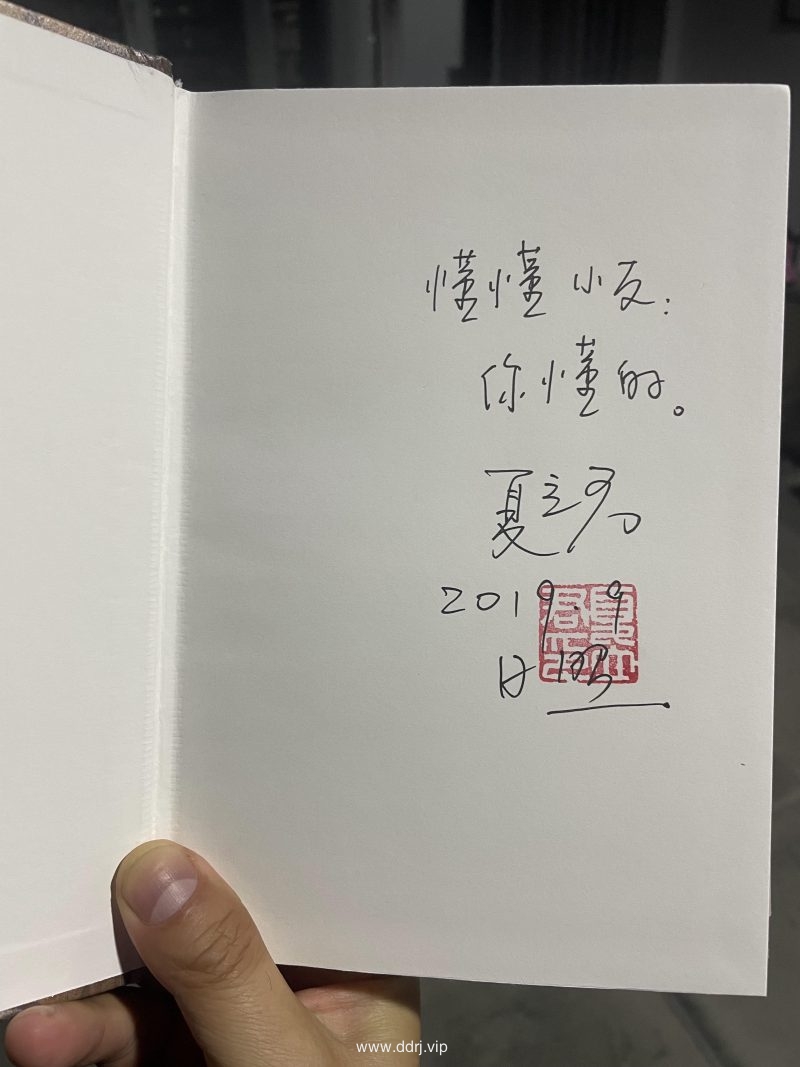 懂懂小友：
你懂的。
夏立君
2019.9
日照
www.ddrj.vip